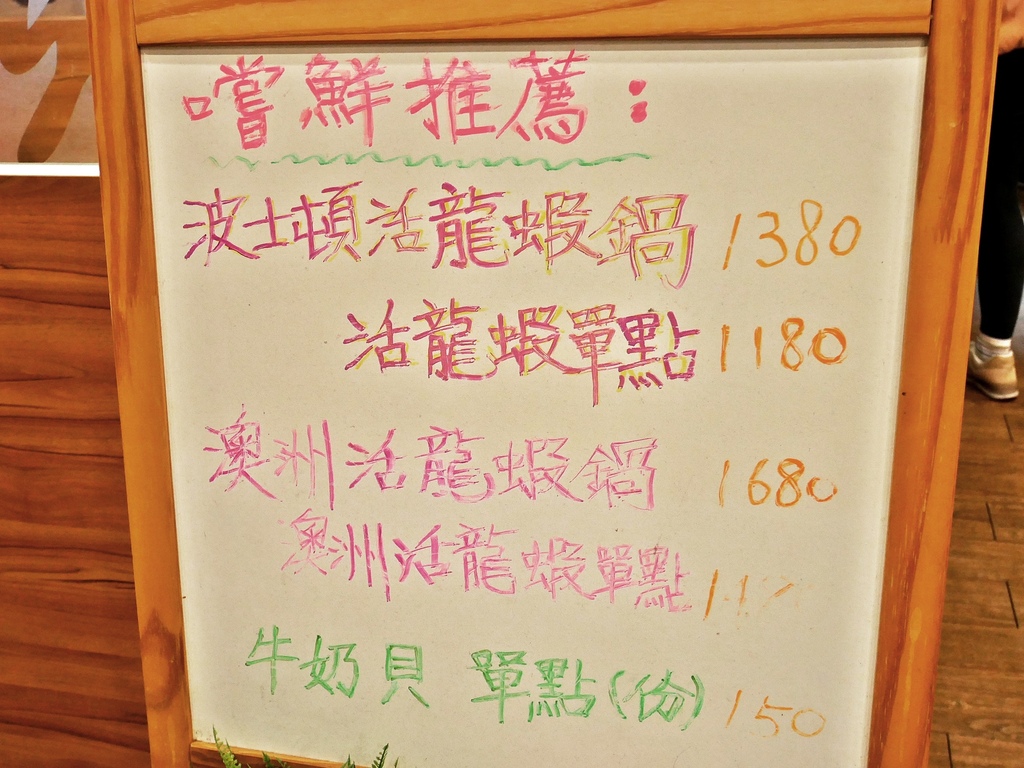 嚐鮮推薦：
波士頓活龍蝦鍋 1380
活龍蝦單點 1180
澳洲活龍蝦鍋 1680
澳洲活龍蝦單點
牛奶貝 單點(份) 150